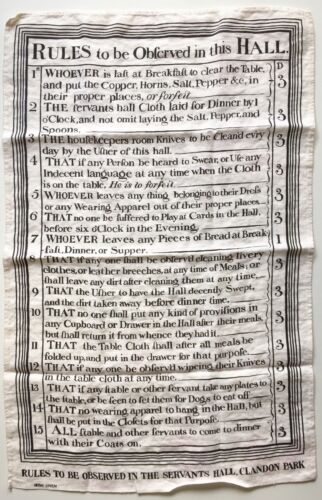 RULES to be Obſerved in this HALL.
D
1ˢᵗ WHOEVER is laſt at Breakfaſt to clear the Table, 3
and put the Copper, Horns, Salt, Pepper &c, in
their proper places, or forfeit
2 THE ſervants hall Cloth laid for Dinner by 1 3
o'Clock, and not omit laying the Salt, Pepper, and
Spoons.
3 THE houſekeepers room Knives to be Cleand evry 3
day by the Uſher of this hall.
4 THAT if any Perſon be heard to Swear, or Uſe any 3
Indecent language at any time when the Cloth
is on the table, He is to forfeit
5 WHOEVER leaves any thing belonging to their Dreſs 3
or any Wearing Apparel out of their proper places
6 THAT no one be ſuffered to Play at Cards in the Hall, 3
before six o'Clock in the Evening.
7 WHOEVER leaves any Pieces of Bread at Break 1
faſt, Dinner, or Supper.
8 THAT if any one ſhall be obſervd cleaning livery 3
clothes, or leather breeches, at any time of Meals; or
ſhall leave any dirt after cleaning them at any time.
9 THAT the Uſher to have the Hall decently Swept, 3
and the dirt taken away before dinner time.
10 THAT no one ſhall put any kind of proviſions in 3
any Cupboard or Drawer in the Hall after their meals,
but ſhall return it from whence they had it.
11 THAT the Table Cloth ſhall after all meals be 3
folded up, and put in the drawer for that purpoſe.
12 THAT if any one be obſervd wipeing their Knives 3
in the table cloth at any time.
13 THAT if any ſtable or other ſervant take any plates to 3
the ſtable, or be ſeen to ſet them for Dogs to eat off
14 THAT no wearing apparel to hang in the Hall, but 3
ſhall be put in the Closets for that Purpoſe.
15 ALL ſtable and other ſervants to come to dinner 3
with their Coats on.
RULES TO BE OBSERVED IN THE SERVANTS HALL, CLANDON PARK